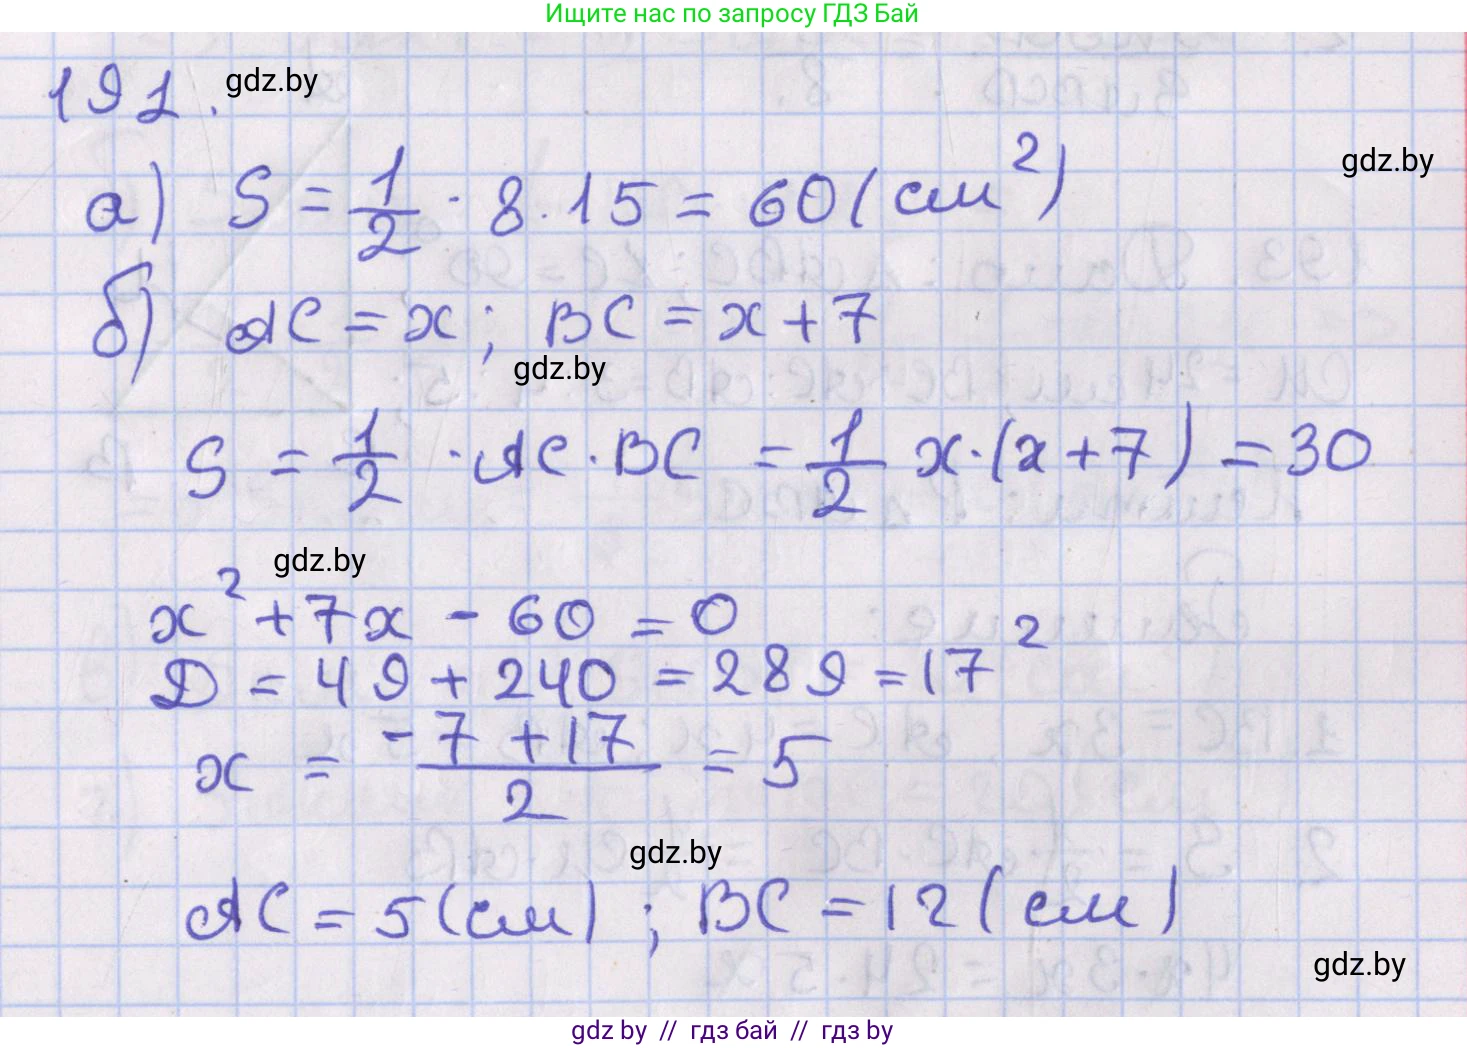 Ищите нас по запросу ГДЗ Бай
191. gdz.by
gdz.by
а) S = 1/2 · 8 · 15 = 60 (см²)
б) AC = x; BC = x + 7
gdz.by
S = 1/2 · AC · BC = 1/2 x · (x + 7) = 30
gdz.by
x² + 7x - 60 = 0
D = 49 + 240 = 289 = 17²
x = (-7 + 17)/2 = 5
gdz.by
AC = 5 (см) ; BC = 12 (см)
gdz.by
gdz by // гдз бай // гдз by